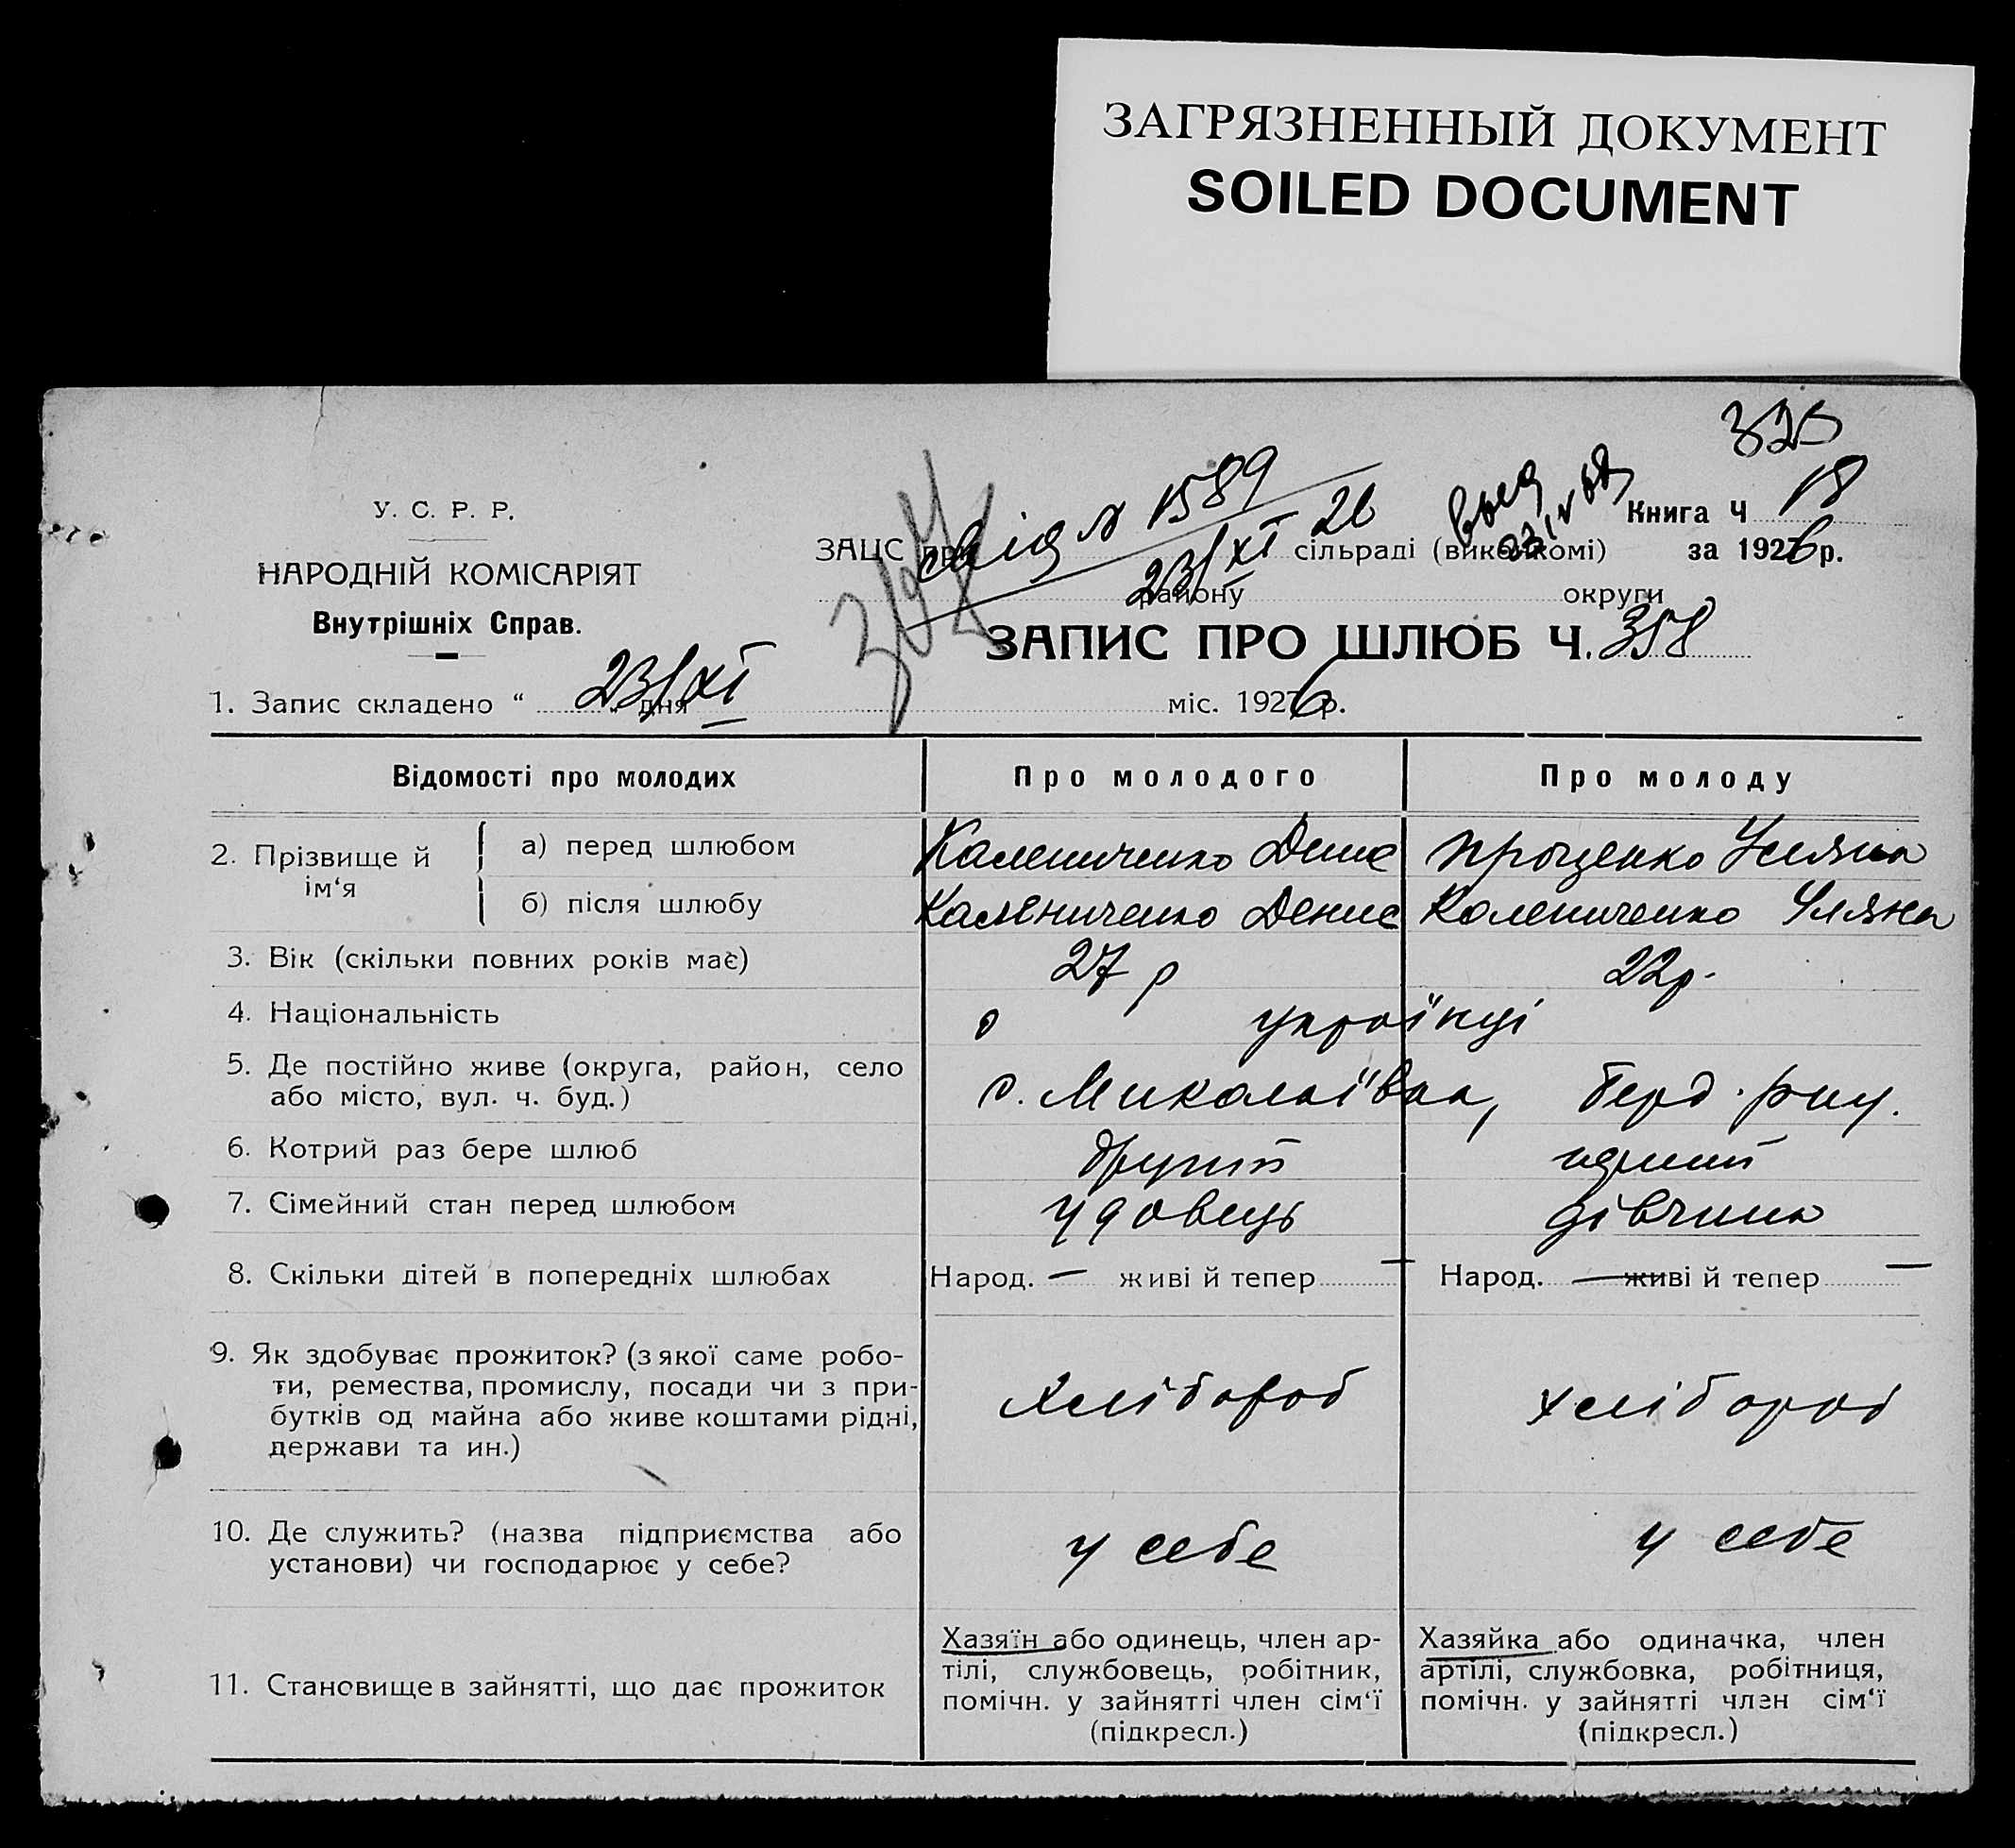 ЗАГРЯЗНЕННЫЙ ДОКУМЕНТ
SOILED DOCUMENT
325
У. С. Р. Р.
НАРОДНІЙ КОМІСАРІЯТ
Внутрішніх Справ.
свід № 1589
23/XI 26
Книга Ч 18
ЗАЦС при сільраді (виконкомі) за 1926 р.
району округи
ЗАПИС ПРО ШЛЮБ Ч. 358
1. Запис складено “ 23/XI ” дня міс. 1926 р.
Відомості про молодих Про молодого Про молоду
2. Прізвище й ім‘я
а) перед шлюбом Калениченко Денис Проценко Уляна
б) після шлюбу Калениченко Денис Калениченко Уляна
3. Вік (скільки повних років має) 27 р 22 р.
4. Національність українці
5. Де постійно живе (округа, район, село
або місто, вул. ч. буд.) с. Миколаївка, Берд. рну.
6. Котрий раз бере шлюб другий перший
7. Сімейний стан перед шлюбом удовець дівчина
8. Скільки дітей в попередніх шлюбах Народ. — живі й тепер — Народ. — живі й тепер —
9. Як здобуває прожиток? (з якої саме робо-
ти, ремества, промислу, посади чи з при-
бутків од майна або живе коштами рідні,
держави та ин.) хлібороб хлібороб
10. Де служить? (назва підприємства або
установи) чи господарює у себе? у себе у себе
11. Становище в зайнятті, що дає прожиток
Хазяїн або одинець, член ар-
тілі, службовець, робітник,
помічн. у зайнятті член сім‘ї
(підкресл.)
Хазяйка або одиначка, член
артілі, службовка, робітниця,
помічн. у зайнятті член сім‘ї
(підкресл.)